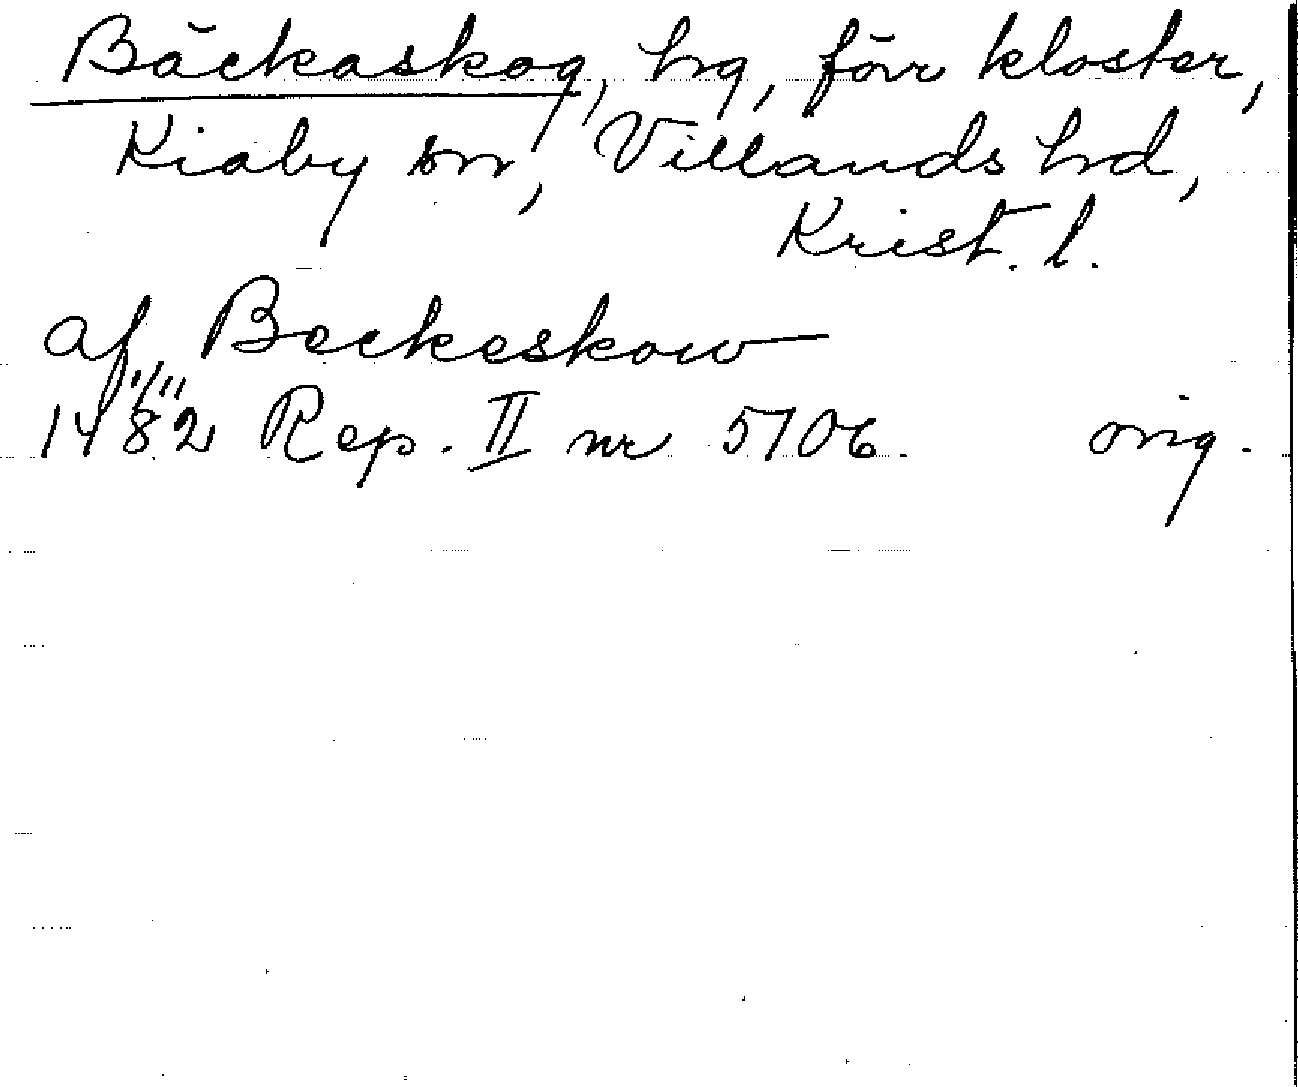 Bäckaskog, hg, förr kloster,
Kiaby sn, Villands hd,
Krist. l.
af Beckeskow
14 1/11 82 Rep. II nr 5706. orig.